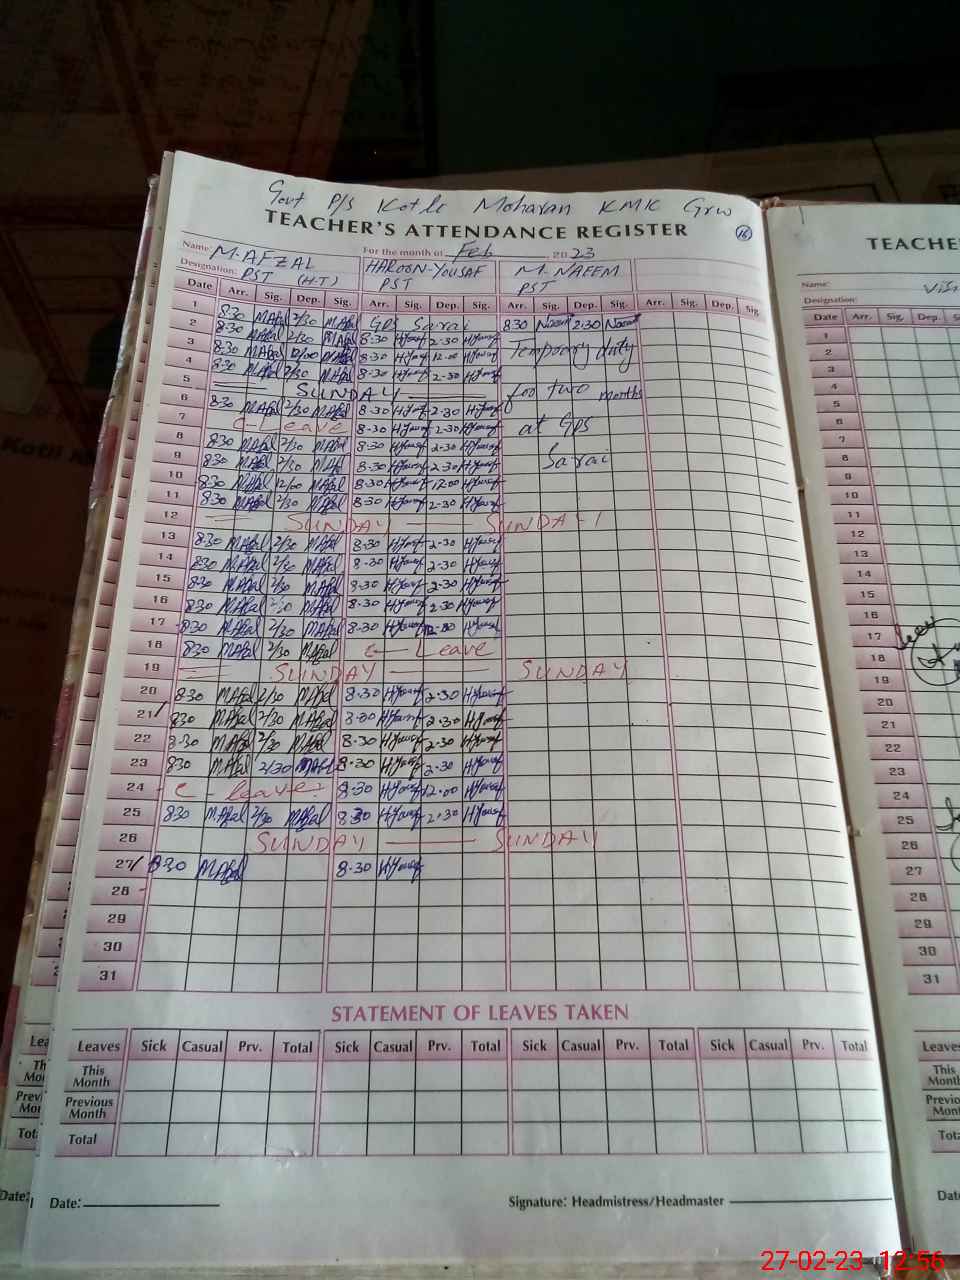 Govt P/S Kotli Moharan KMK Grw
TEACHER'S ATTENDANCE REGISTER 16
Name: M. AFZAL For the month of Feb 2023
Designation: PST (H.T) HAROON-YOUSAF PST M. NAEEM PST
Date Arr. Sig. Dep. Sig. Arr. Sig. Dep. Sig. Arr. Sig. Dep. Sig. Arr. Sig. Dep. Sig.
1 8:30 MAfzal 2/30 MAfzal GPS Sarai 8:30 Naeem 2:30 Naeem
2 8:30 MAfzal 2/30 MAfzal 8-30 HYousf 2-30 HYousf Temporary duty
3 8:30 MAfzal 12/00 MAfzal 8-30 HYousf 12-00 HYousf
4 8:30 MAfzal 2/30 MAfzal 8-30 HYousf 2-30 HYousf
5 SUNDAY for two months
6 8:30 MAfzal 2/30 MAfzal 8-30 HYousf 2-30 HYousf
7 C-Leave 8-30 HYousf 2-30 HYousf at GPS
8 8:30 MAfzal 2/30 MAfzal 8-30 HYousf 2-30 HYousf
9 8:30 MAfzal 2/30 MAfzal 8-30 HYousf 2-30 HYousf Sarai
10 8:30 MAfzal 12/00 MAfzal 8-30 HYousf 12-00 HYousf
11 8:30 MAfzal 2/30 MAfzal 8-30 HYousf 2-30 HYousf
12 SUNDAY SUNDAY
13 8:30 MAfzal 2/30 MAfzal 8-30 HYousf 2-30 HYousf
14 8:30 MAfzal 2/30 MAfzal 8-30 HYousf 2-30 HYousf
15 8:30 MAfzal 2/30 MAfzal 8-30 HYousf 2-30 HYousf
16 8:30 MAfzal 2/30 MAfzal 8-30 HYousf 2-30 HYousf
17 8:30 MAfzal 2/30 MAfzal 8-30 HYousf HYousf
18 8:30 MAfzal 2/30 MAfzal C- Leave
19 SUNDAY SUNDAY
20 8-30 MAfzal 2/30 MAfzal 8-30 HYousf 2-30 HYousf
21 8:30 MAfzal 2/30 MAfzal 8-30 HYousf 2-30 HYousf
22 8-30 MAfzal 2/30 MAfzal 8-30 HYousf 2-30 HYousf
23 8:30 MAfzal 2/30 MAfzal 8-30 HYousf 2-30 HYousf
24 C- leave 8-30 HYousf 12-00 HYousf
25 8:30 MAfzal 2/30 MAfzal 8-30 HYousf 2-30 HYousf
26 SUNDAY SUNDAY
27 8-30 MAfzal 8-30 HYousf
28
29
30
31
STATEMENT OF LEAVES TAKEN
Leaves Sick Casual Prv. Total Sick Casual Prv. Total Sick Casual Prv. Total Sick Casual Prv. Total
This Month
Previous Month
Total
Date: Signature: Headmistress/Headmaster
TEACHE
Name:
Designation:
Date Arr. Sig. Dep. S
1
2
3
4
5
6
7
8
9
10
11
12
13
14
15
16
17
18
19
20
21
22
23
24
25
26
27
28
29
30
31
Leaves
This Month
Previo Mont
Tota
Dat
27-02-23 12:56